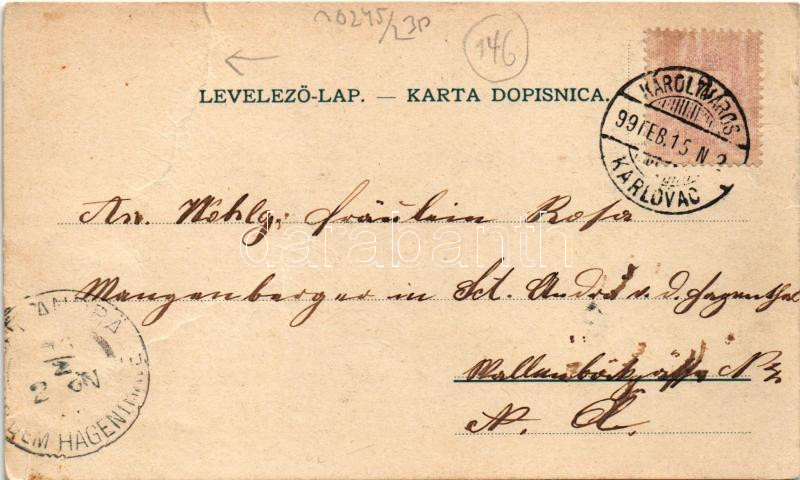 0245/23P
146
LEVELEZŐ-LAP. — KARTA DOPISNICA.
KÁROLYVÁROS
99 FEB. 15 N 2
KARLOVAC
An Wohlg. Fräulein Rosa
darabanth
Mangenberger in Sct. Andrä v. d. Hagenthal
Wallenböckgasse N
N. Ö.
ANDRÄ
DEM HAGENTHALE